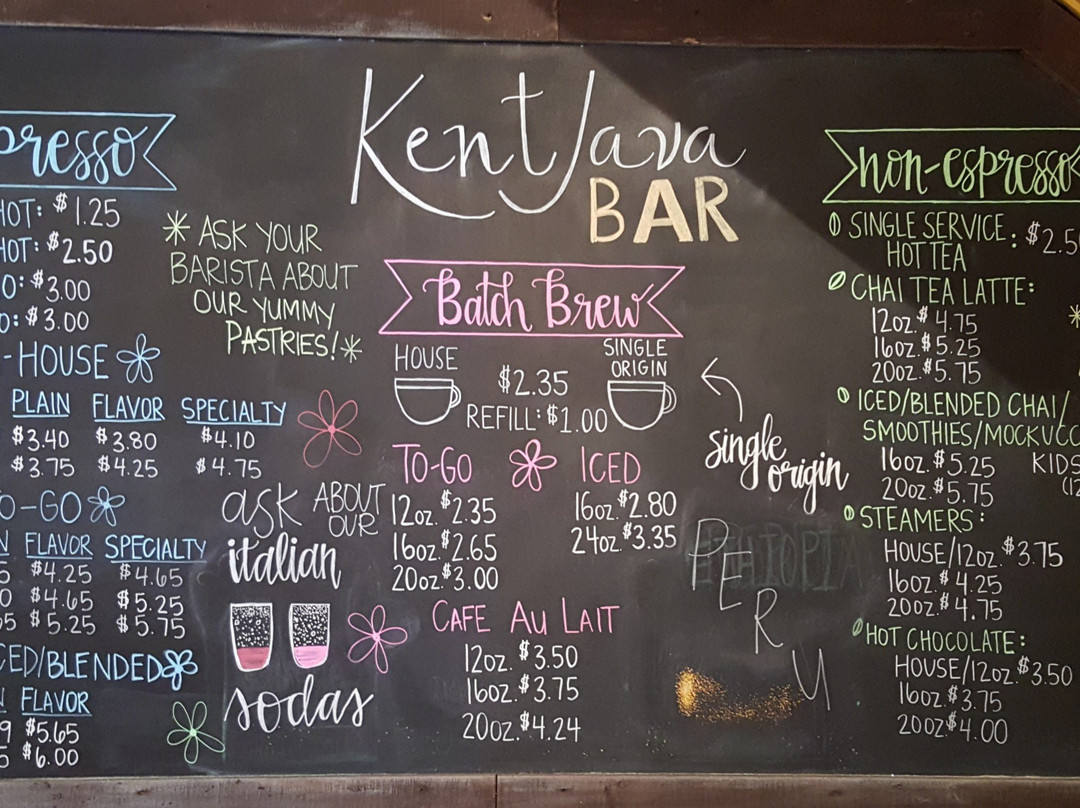 Kent Java
BAR
presso
HOT: $1.25
HOT: $2.50
O: $3.00
O: $3.00
-HOUSE
PLAIN FLAVOR SPECIALTY
$3.40 $3.80 $4.10
$3.75 $4.25 $4.75
O-GO
N FLAVOR SPECIALTY
5 $4.25 $4.65
0 $4.65 $5.25
5 $5.25 $5.75
CED/BLENDED
N FLAVOR
9 $5.65
5 $6.00
* ASK YOUR
BARISTA ABOUT
OUR YUMMY
PASTRIES! *
ask ABOUT
OUR
italian
sodas
Batch Brew
HOUSE
SINGLE
ORIGIN
$2.35
REFILL: $1.00
TO-GO
12oz. $2.35
16oz. $2.65
20oz. $3.00
ICED
16oz. $2.80
24oz. $3.35
CAFE AU LAIT
12oz. $3.50
16oz. $3.75
20oz. $4.24
single
origin
PERU
non-espresso
SINGLE SERVICE: $2.5
HOT TEA
CHAI TEA LATTE:
12oz. $4.75
16oz. $5.25
20oz. $5.75
ICED/BLENDED CHAI/
SMOOTHIES/MOCKUCC
16oz. $5.25 KIDS
20oz. $5.75 (12
STEAMERS:
HOUSE/12oz. $3.75
16oz. $4.25
20oz. $4.75
HOT CHOCOLATE:
HOUSE/12oz. $3.50
16oz. $3.75
20oz. $4.00